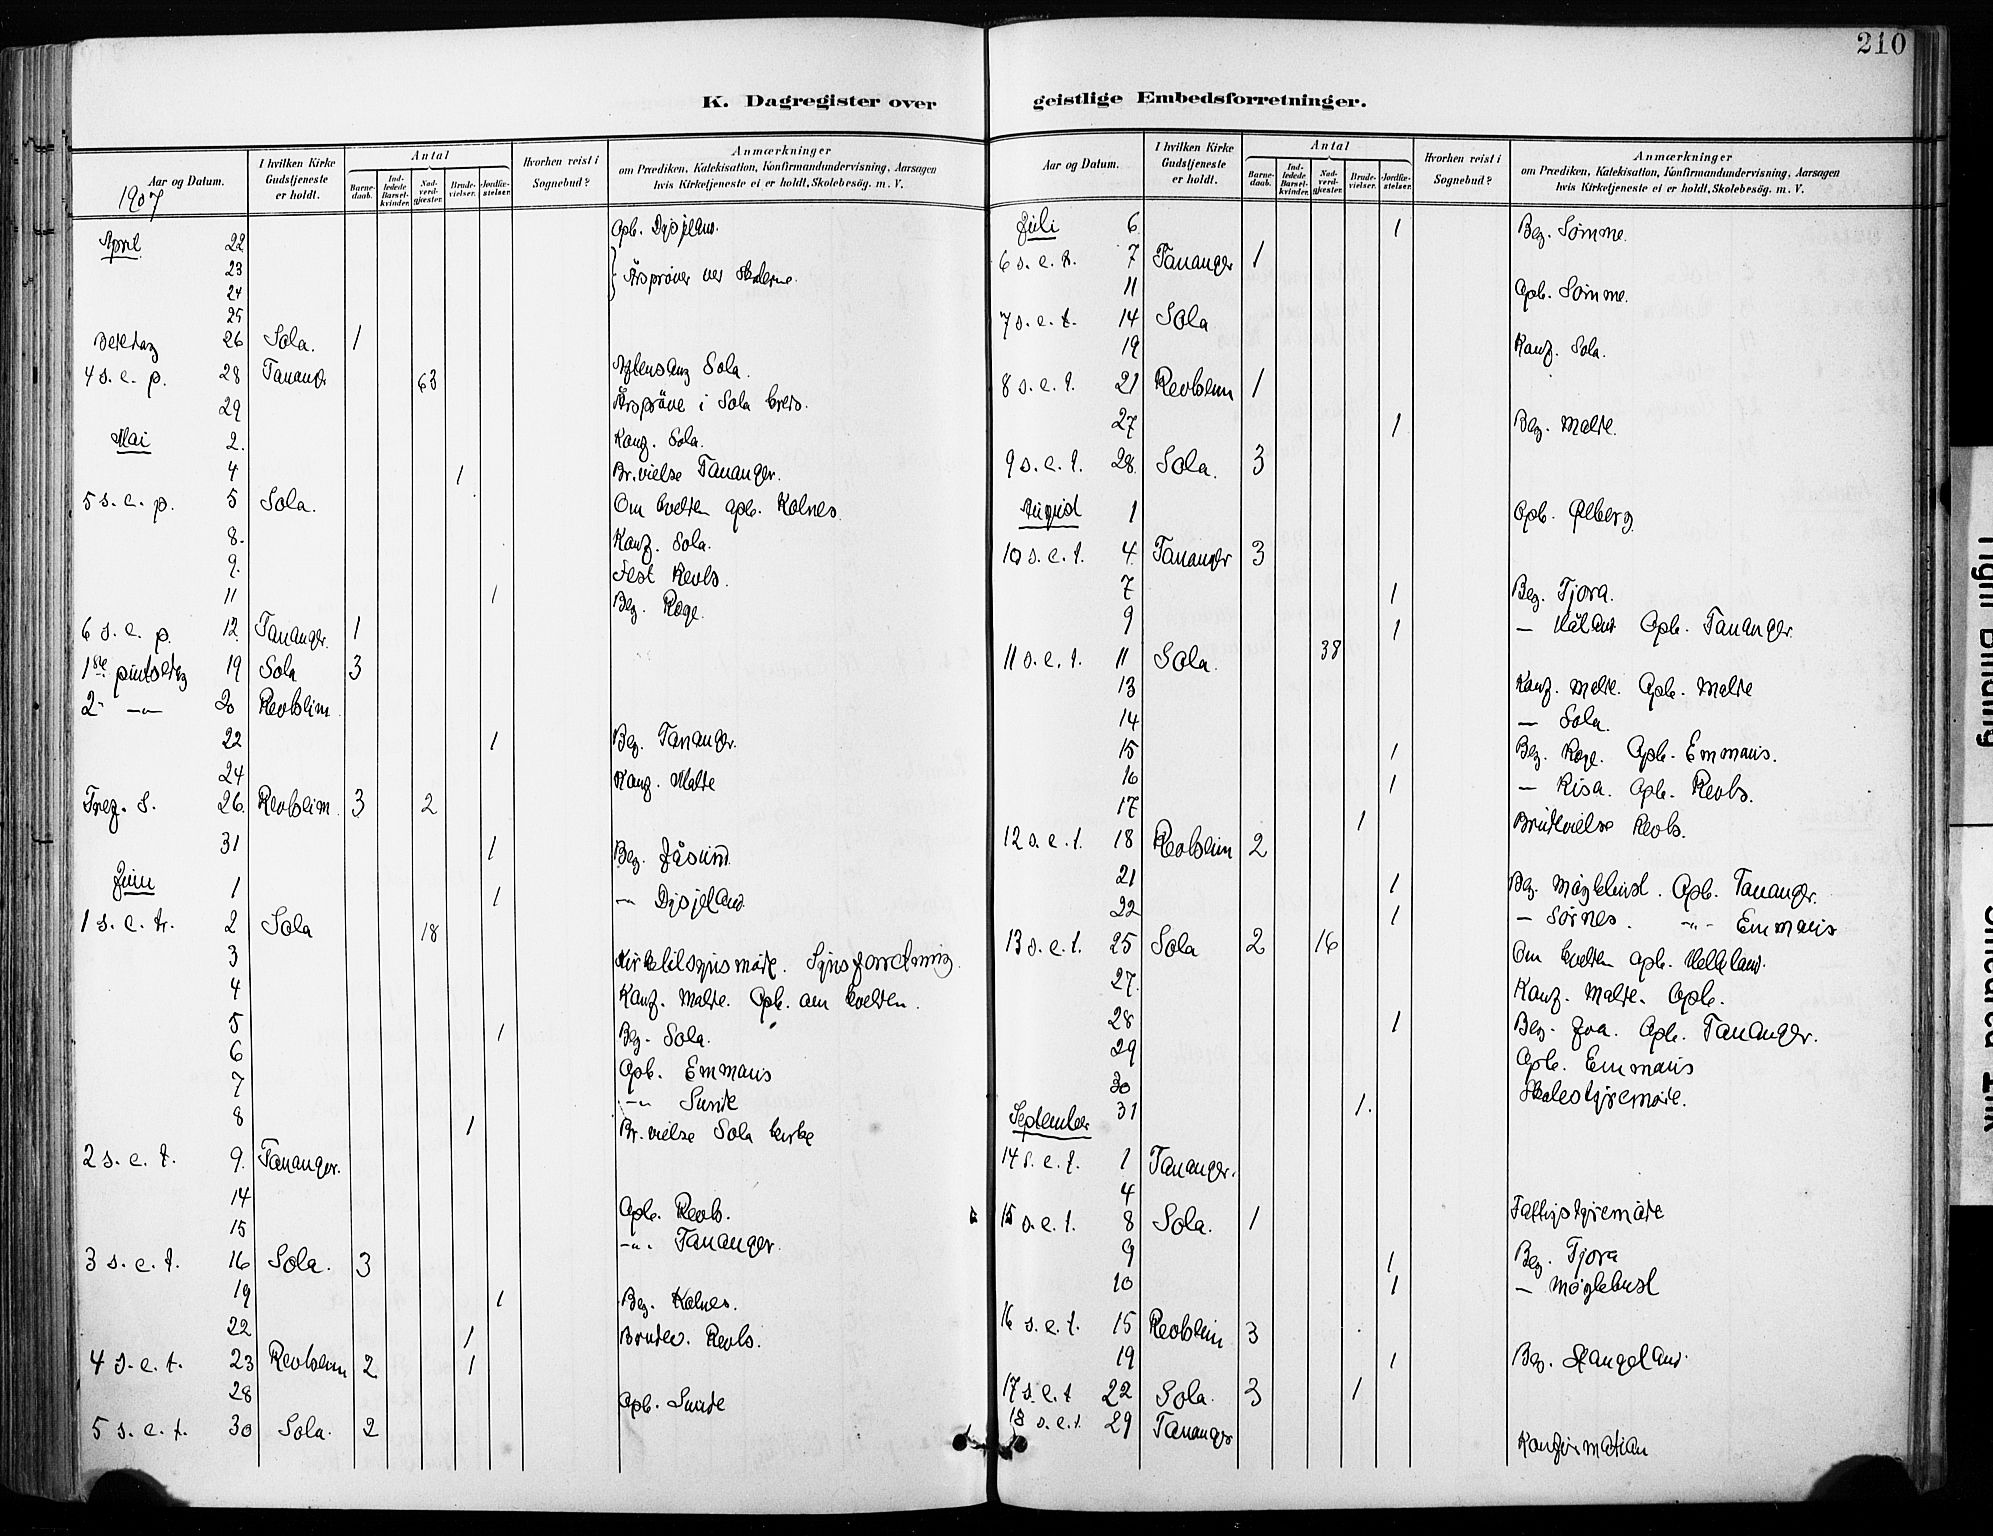 210
K. Dagregister over
geistlige Embedsforretninger.
Aar og Datum.
1907
I hvilken Kirke Gudstjeneste er holdt.
Antal
Barnedaab.
Indledede Barselkvinder.
Nadverdgjæster.
Brudevielser.
Jordfæstelser.
Hvorhen reist i Sognebud?
Anmærkninger
om Prædiken, Katekisation, Konfirmandundervisning, Aarsagen
hvis Kirketjeneste ei er holdt, Skolebesög. m. V.
April 22 Opb. Dysjeland.
23 Årsprøver ved skolerne.
24
25
Bededag 26 Sola. 1
4 s. e. p. 28 Tananger 63 Aftensang Sola.
29 Årsprøve i Sola kreds.
Mai 2. Konf. Sola.
4 1 Br.vielse Tananger.
5 s. e. p. 5 Sola. Om kvelden opb. Kolnes.
8. Konf. Sola.
9. Fest Revh.
11 1 Beg. Røge.
6 s. e. p. 12. Tananger. 1
1ste pintsedag 19 Sola 3
2- -"- 20 Revheim.
22 1 Beg. Tananger.
24 Konf. Malde
Tref. s. 26. Revheim. 3 2
31 1 Beg. Jåsund.
Juni 1 1 -"- Dysjeland.
1 s. e. tr. 2 Sola 18
3 Kirketilsynsmøte. Synsforretning.
4 Konf. Malde. Opb. om kvelden.
5 1 Beg. Sola.
6 Opb. Emmaus
7 -"- Sunde
8 1 Br.vielse Sola kirke
2 s. e. t. 9. Tananger.
14 Opb. Revh.
15 -"- Tananger.
3 s. e. t. 16 Sola. 3
19 1 Beg. Kolnes.
22 1 Brudev. Revh.
4 s. e. t. 23 Revheim 2 1
28 Opb. Sunde
5 s. e. t. 30 Sola. 2
Aar og Datum.
I hvilken Kirke Gudstjeneste er holdt.
Antal
Barnedaab.
Indledede Barselkvinder.
Nadverdgjæster.
Brudevielser.
Jordfæstelser.
Hvorhen reist i Sognebud?
Anmærkninger
om Prædiken, Katekisation, Konfirmandundervisning, Aarsagen
hvis Kirketjeneste ei er holdt, Skolebesög. m. V.
Juli 6 1 Beg. Sømme.
6 s. e. t. 7 Tananger 1
11 Opb. Sømme.
7 s. e. t. 14 Sola
19 Konf. Sola.
8 s. e. t. 21 Revheim 1
27 1 Beg. Malde.
9 s. e. t. 28. Sola. 3
August 1 Opb. Ølberg
10 s. e. t. 4. Tananger 3
7 1 Beg. Tjora.
9 1 — Håland Opb. Tananger.
11 s. e. t. 11 Sola. 38
13 Konf. Malde. Opb. Malde
14 — Sola.
15 1 Beg. Røge. Opb. Emmaus.
16 1 — Risa. Opb. Revh.
17 1 Brudevielse Revh.
12 s. e. t. 18 Revheim 2
21 1 Beg. Møglehust. Opb. Tananger.
22 1 — Sørnes. -"- Emmaus
13 s. e. t. 25 Sola 2 16 Om kvelden opb. Helleland.
27. Konf. Malde. Opb.
28 1 Beg. Joa. Opb. Tananger.
29 Opb. Emmaus
30 Skolestyremøte.
31 1.
September
14 s. e. t. 1 Tananger.
4 Fattigstyremøte
15 s. e. t. 8 Sola. 1
9 1 Beg. Tjora
10 1 — Møglehust
16 s. e. t. 15 Revheim 3
19 1 Beg. Stangeland.
17 s. e. t 22 Sola. 3 1
18 s. e. t. 29 Tananger Konfirmation